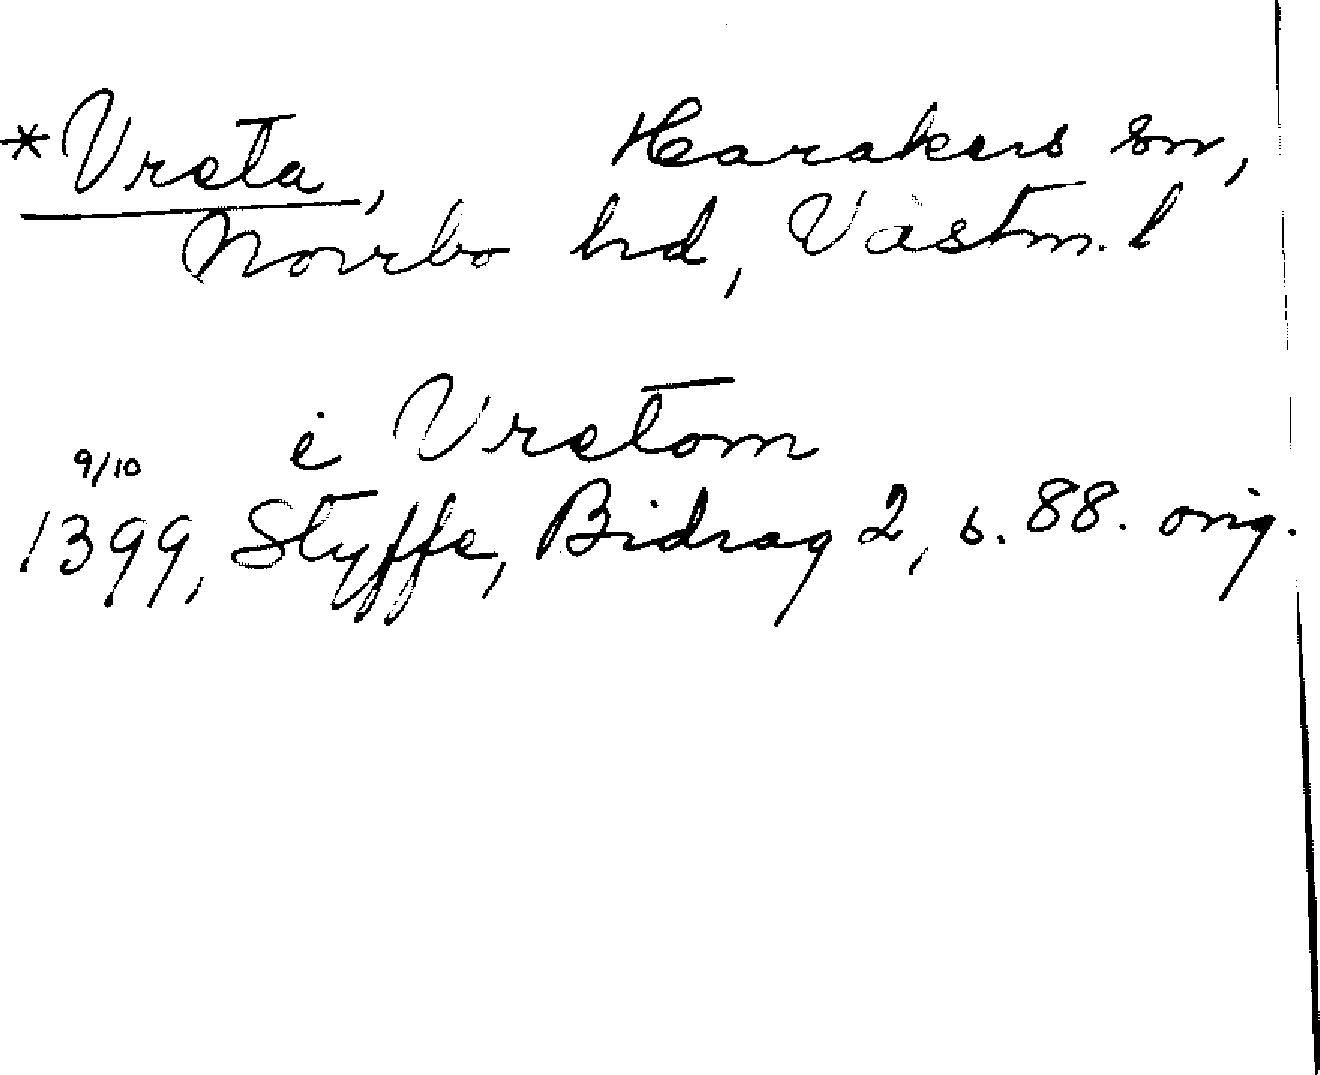 *Vreta, Harakers sn,
Norrbo hd, Västm. l
i Vretom
9/10
1399, Styffe, Bidrag 2, s. 88. orig.